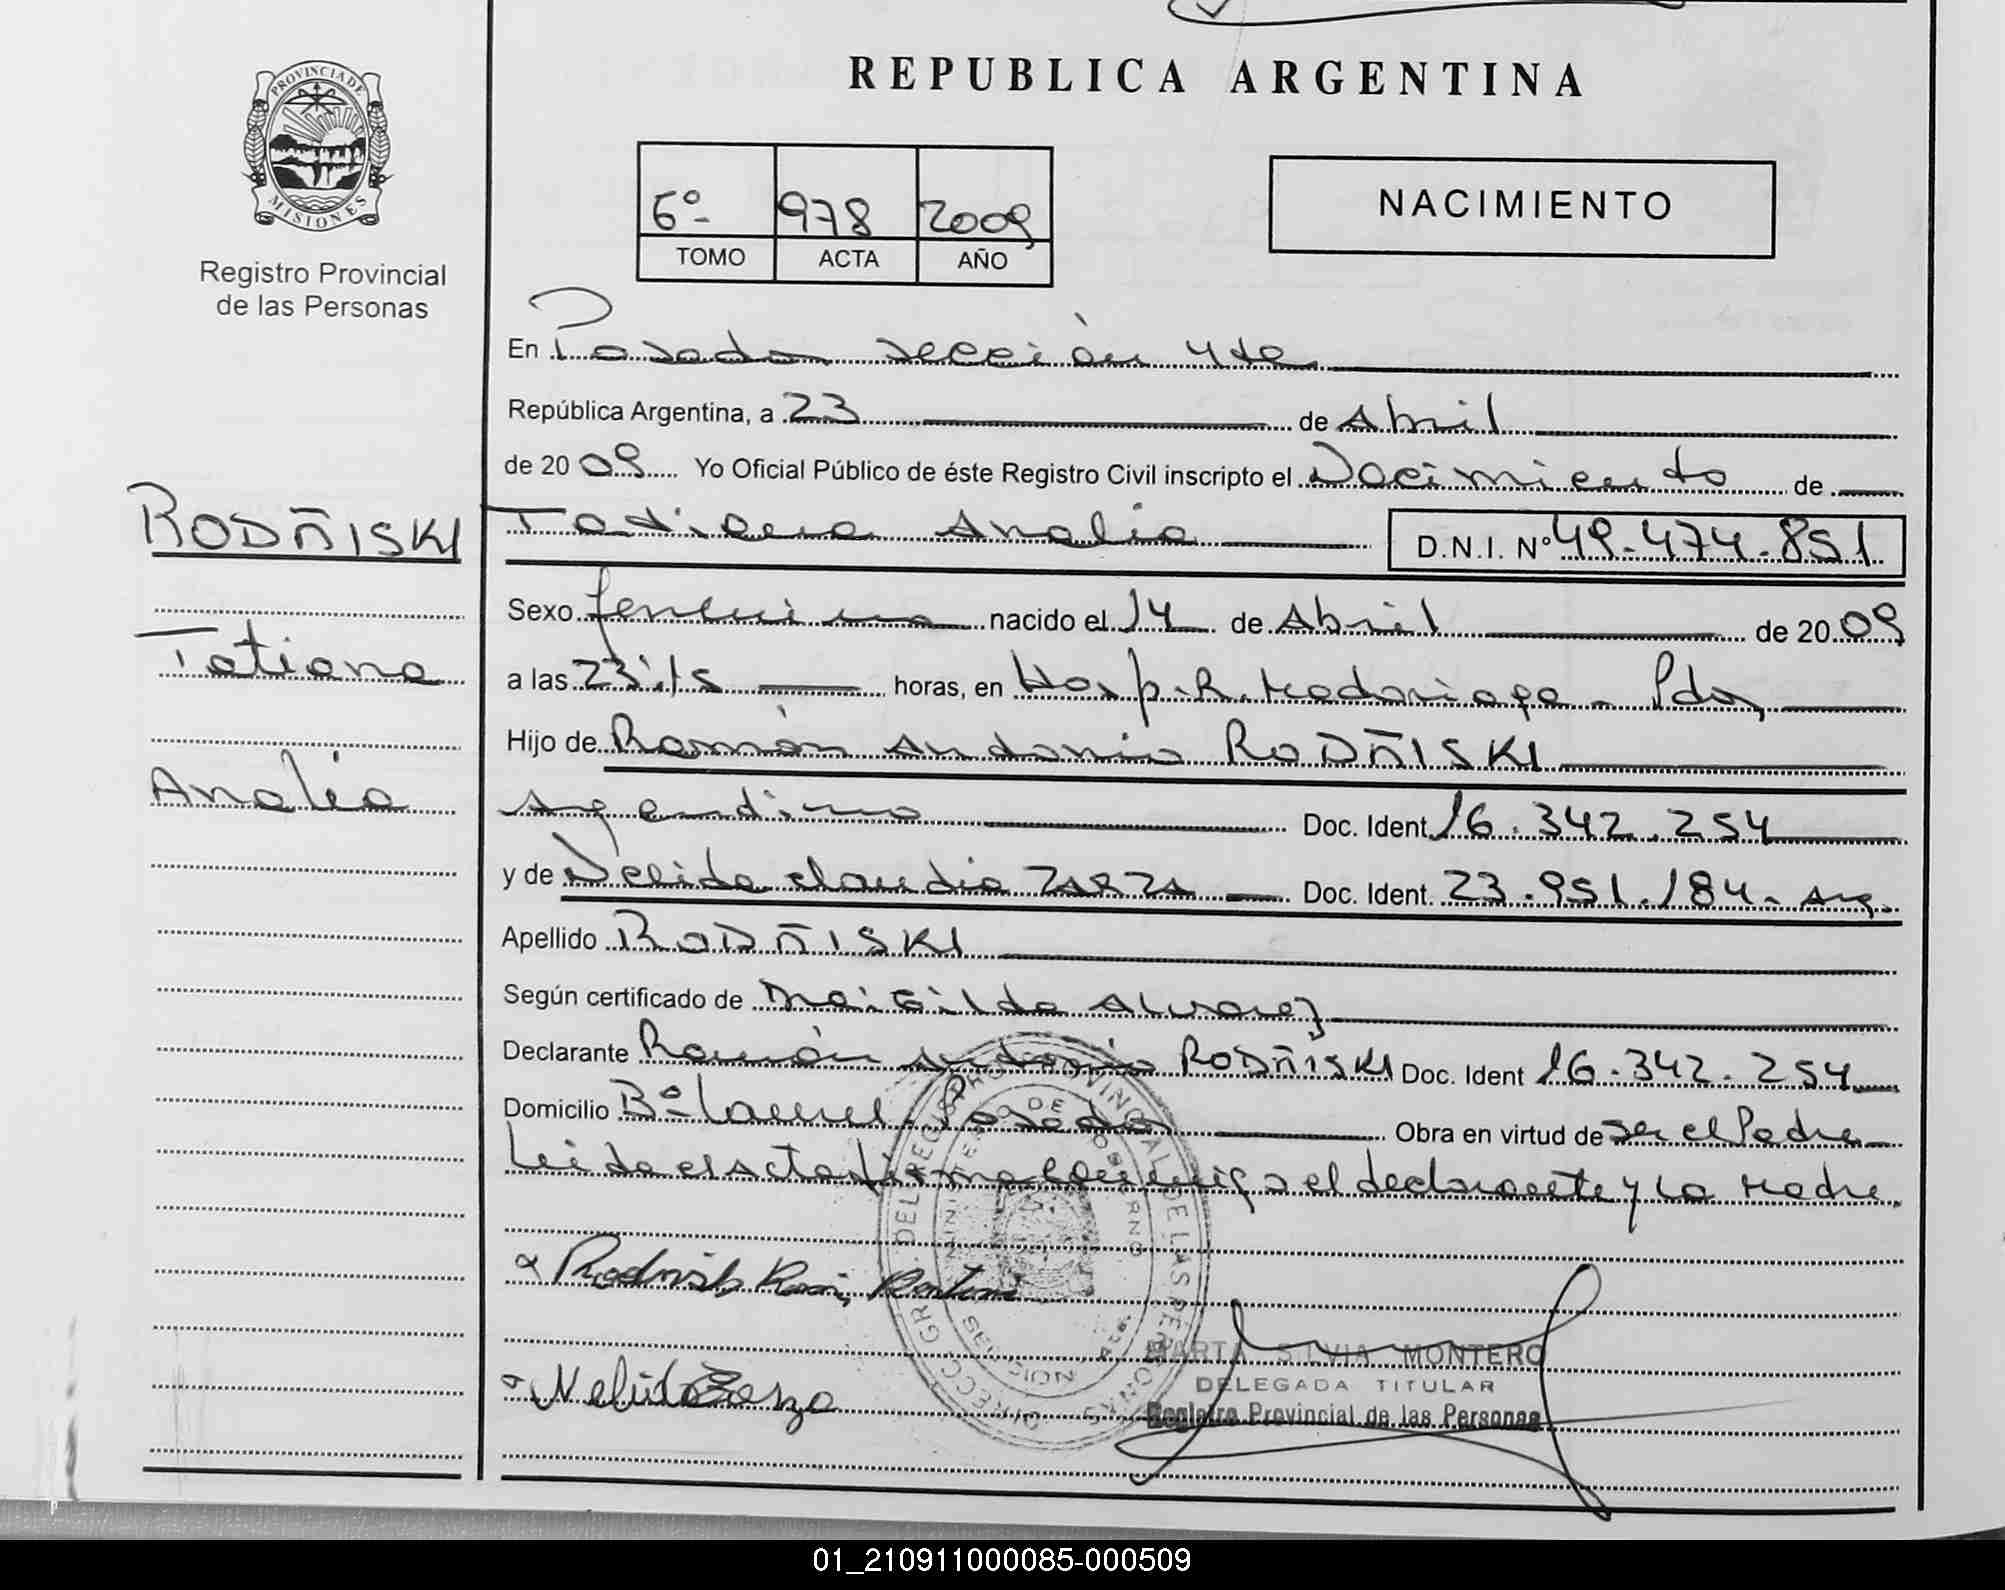 REPUBLICA ARGENTINA
PROVINCIA DE
MISIONES
Registro Provincial
de las Personas
6º- 978 2009
TOMO ACTA AÑO
NACIMIENTO
En Posadas sección 4ta
República Argentina, a 23 de Abril
de 2009 Yo Oficial Público de éste Registro Civil inscripto el Nacimiento de
RODÑISKI
Tatiana Analía D.N.I. Nº 49.474.851
Sexo femenino nacido el 14 de Abril de 2009
Tatiana
a las 23:15 horas, en Hosp. R. Madariaga - Pdas
Hijo de Ramón Antonio RODÑISKI
Analía
Argentino Doc. Ident. 16.342.254
y de Nelida Claudia ZARZA Doc. Ident. 23.951.184- Arg.
Apellido RODÑISKI
Según certificado de Alvarez
Declarante Ramón Antonio RODÑISKI Doc. Ident 16.342.254
Domicilio Bº Laurel Posadas Obra en virtud de ser el Padre
Leida el acta firma conmigo el declarante y la Madre
Ramón Antonio
Nelida Zarza
MARTA SILVIA MONTERO
DELEGADA TITULAR
Registro Provincial de las Personas
01_210911000085-000509